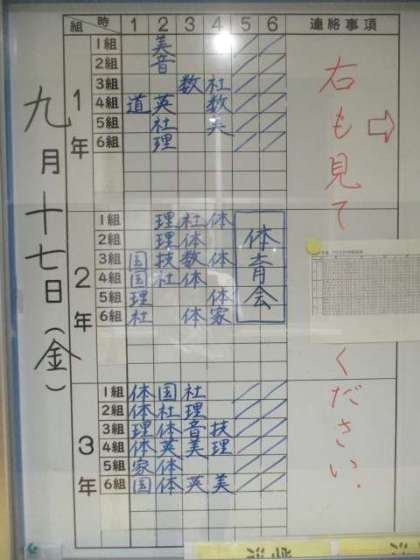 九月十七日(金)
組 時 1 2 3 4 5 6 連絡事項
1年
1組 美
2組 音
3組 数 社
4組 道 英 数
5組 社 英
6組 理
2年
1組 理 社 体
2組 理 体
3組 国 技 数 体
4組 国 社 体
5組 理 体
6組 社 体 家
体育会
3年
1組 体 国 社
2組 体 社 理
3組 理 体 音 技
4組 体 英 美 理
5組 家 体
6組 国 体 英 美
右も見てください.